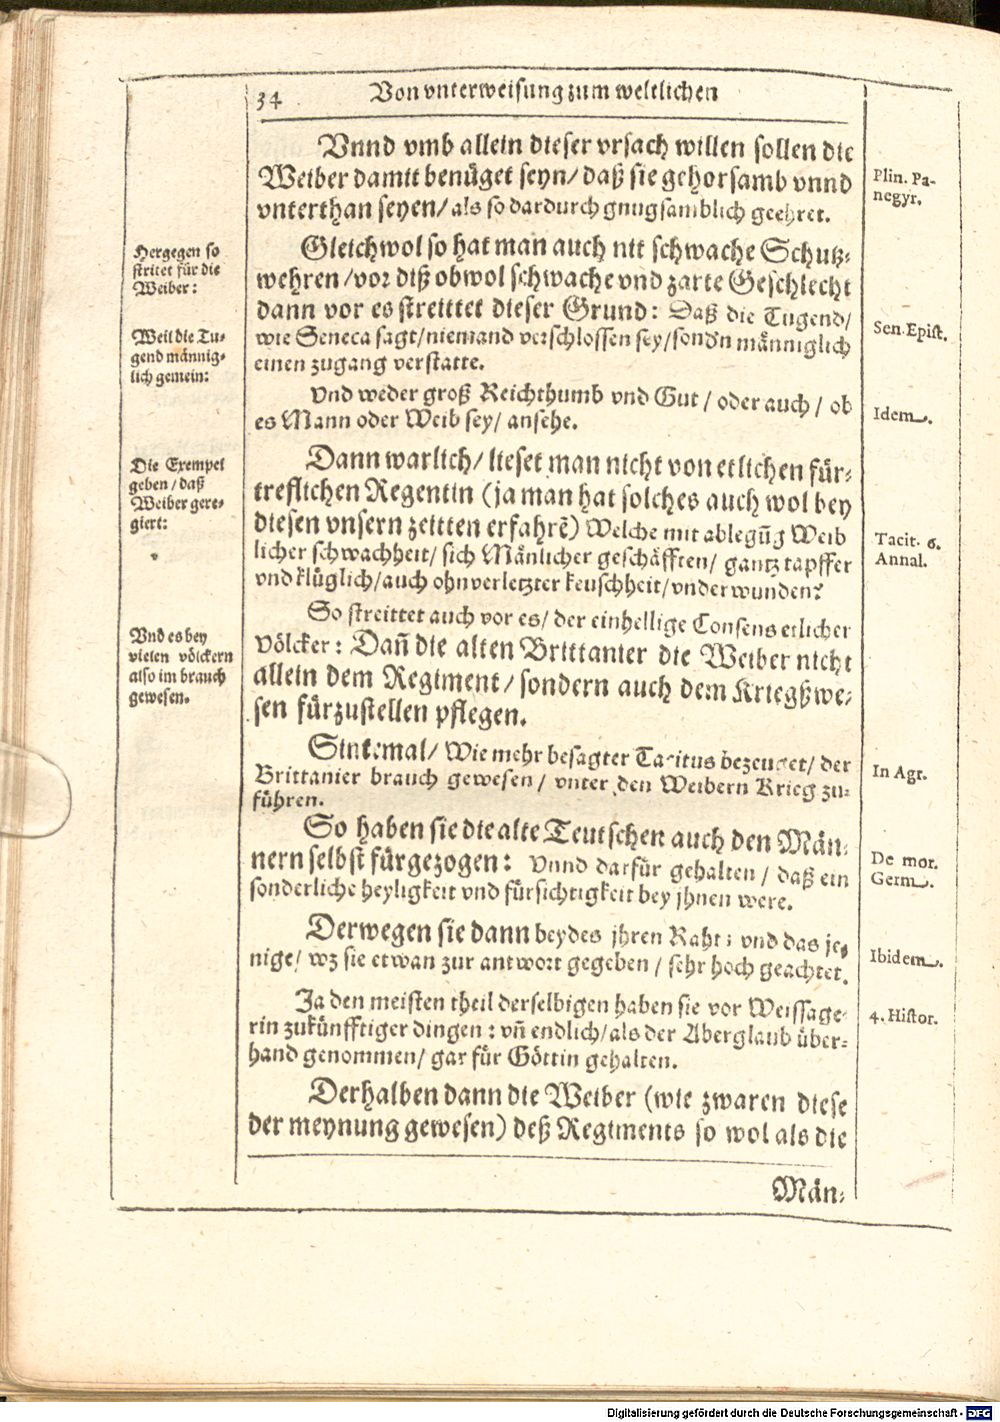 34
Von vnterweisung zum weltlichen
Vnnd vmb allein dieser vrsach willen sollen die
Weiber damit benüget seyn/ daß sie gehorsamb vnnd
vnterthan seyen/ als so dardurch gnugsamblich geehret.
Plin. Pa-
negyr.
Gleichwol so hat man auch nit schwache Schutz-
wehren/ vor diß obwol schwache vnd zarte Geschlecht
dann vor es streittet dieser Grund: Daß die Tugend/
wie Seneca sagt/ niemand verschlossen sey/ sond'n männiglich
einen zugang verstatte.
Hergegen so
stritet für die
Weiber:
Weil die Tu-
gend männig-
lich gemein:
Sen. Epist.
Vnd weder groß Reichthumb vnd Gut/ oder auch/ ob
es Mann oder Weib sey/ ansehe.
Idem.
Dann warlich/ lieset man nicht von etlichen für-
treflichen Regentin (ja man hat solches auch wol bey
diesen vnsern zeitten erfahrẽ) Welche mit ablegũg Weib
licher schwachheit/ sich Mänlicher geschäfften/ gantz tapffer
vnd klüglich/ auch ohnverletzter keuschheit/ vnderwunden?
Die Exempel
geben/ daß
Weiber gere-
giert:
Tacit. 6.
Annal.
So streittet auch vor es/ der einhellige Consens etlicher
völcker: Dañ die alten Brittanier die Weiber nicht
allein dem Regiment/ sondern auch dem Kriegßwe-
sen fürzustellen pflegen.
Vnd es bey
vielen völckern
also im brauch
gewesen.
Sintemal/ Wie mehr besagter Tacitus bezeuget/ der
Brittanier brauch gewesen/ vnter den Weibern Krieg zu-
führen.
In Agr.
So haben sie die alte Teutschen auch den Män-
nern selbst fürgezogen: Vnnd darfür gehalten/ daß ein
sonderliche heyligkeit vnd fürsichtigkeit bey jhnen were.
De mor.
Germ.
Derwegen sie dann beydes jhren Raht; vnd das je-
nige/ wz sie etwan zur antwort gegeben/ sehr hoch geachtet.
Ibidem.
Ja den meisten theil derselbigen haben sie vor Weissage-
rin zukünfftiger dingen: vñ endlich/ als der Aberglaub über-
hand genommen/ gar für Göttin gehalten.
4. Histor.
Derhalben dann die Weiber (wie zwaren diese
der meynung gewesen) deß Regiments so wol als die
Män-
Digitalisierung gefördert durch die Deutsche Forschungsgemeinschaft - DFG